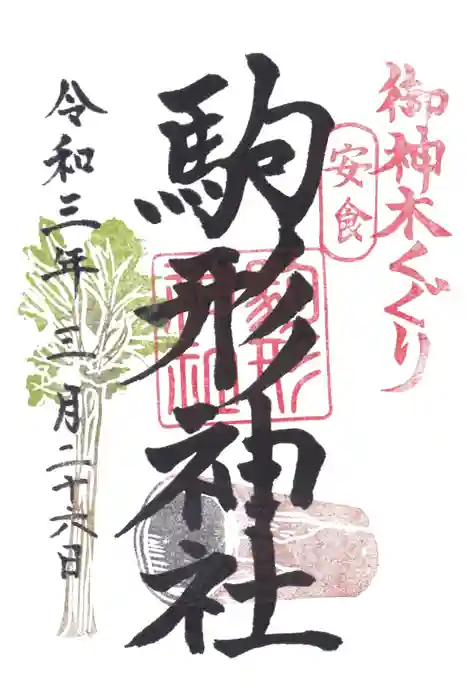 御神木くぐり
安食
駒形神社
令和三年三月二十六日